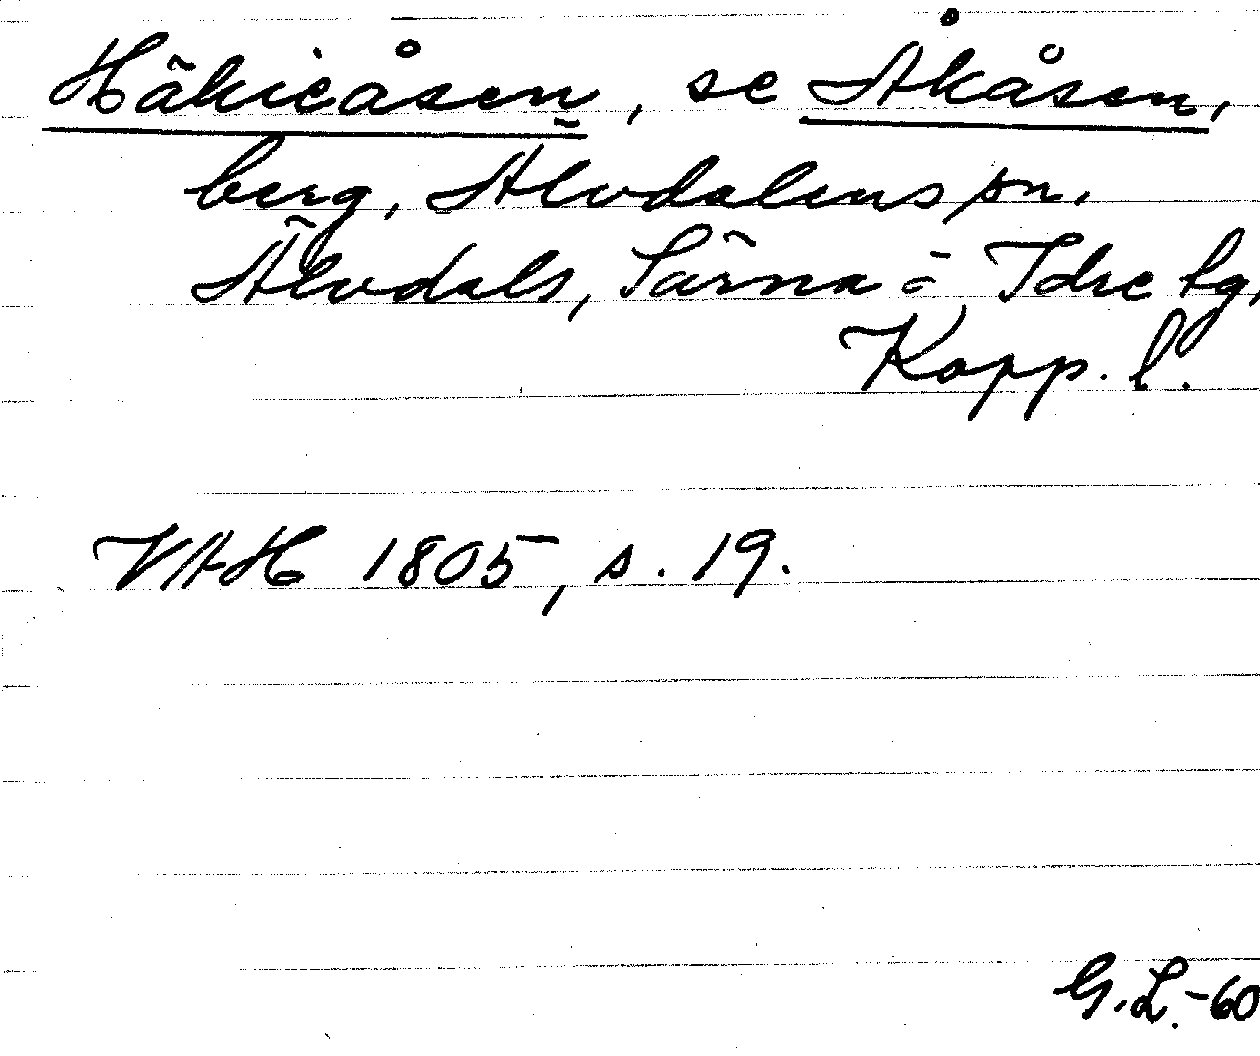 Häkieåsen, se Åkåsen,
berg, Älvdalens sn.
Älvdals, Särna o Idre tg,
Kopp. l.
VAH 1805, s. 19.
G.L.-60